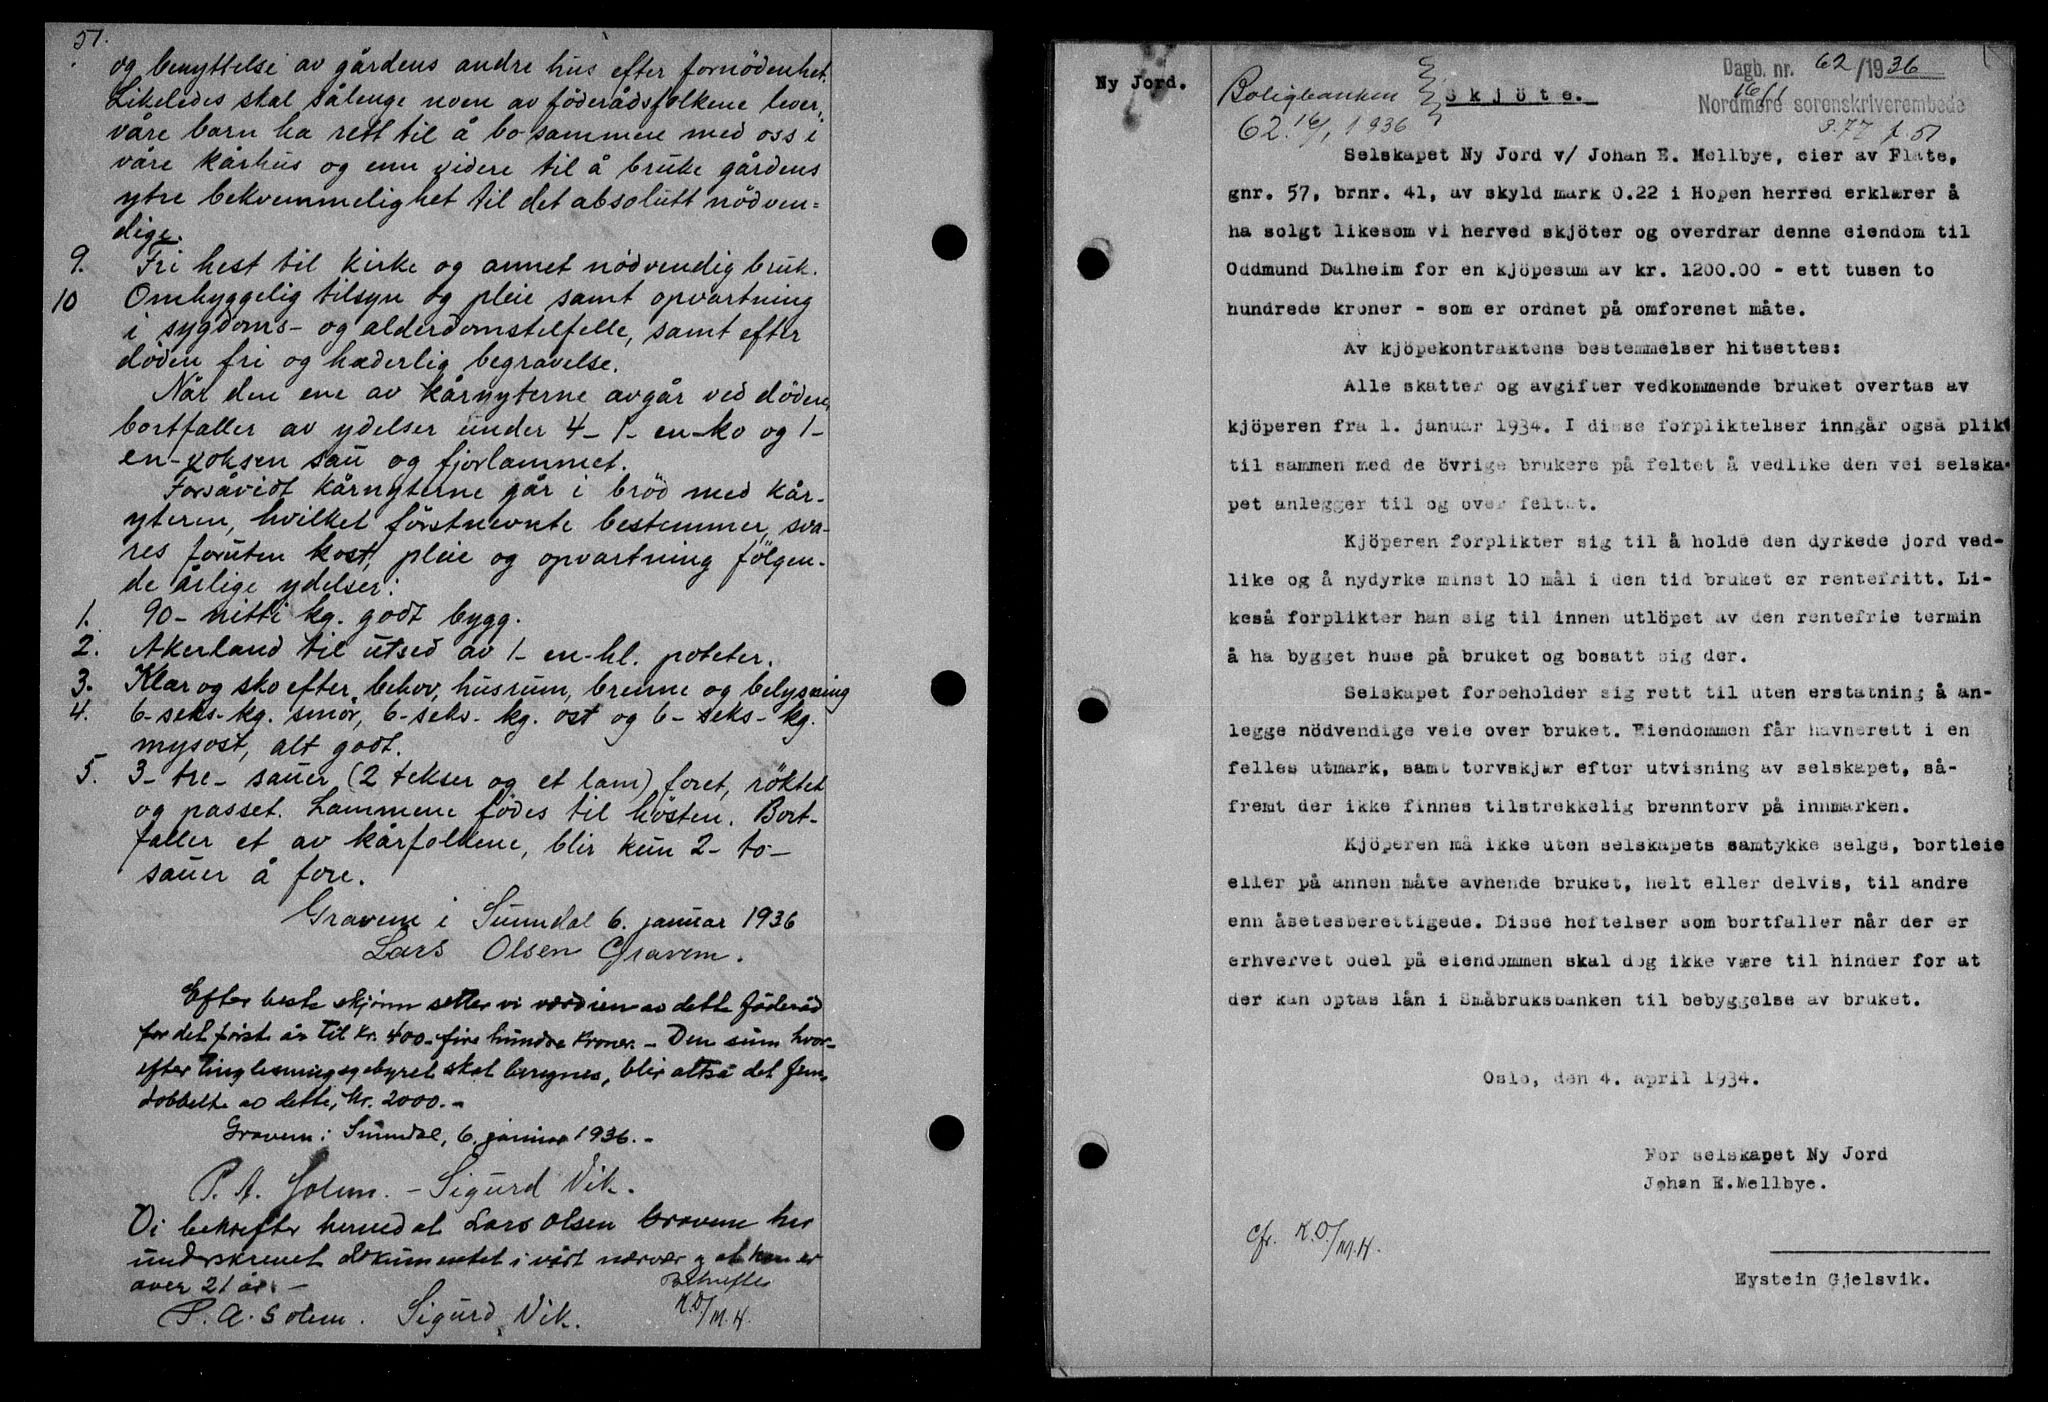 51.
og benyttelse av gårdens andre hus efter fornödenhet.
Likeledes skal sålenge noen av föderådsfolkene lever,
våre barn ha rett til å bo sammen med oss i
våre kårhus og enn videre til å bruke gårdens
ytre bekvemmelighet til det absolutt nödven=
dige.
9. Fri hest til kirke og annet nödvendig bruk.
10 Omhyggelig tilsyn og pleie samt opvartning
i sygdoms- og alderdomstilfelle, samt efter
döden fri og hæderlig begravelse.
Når den ene av kårnyterne avgår ved döden,
bortfaller av ydelser under 4 - 1 - en - ko og 1 -
en - voksen sau og fjorlammet.
Forsåvidt kårnyterne går i bröd med kår-
yteren, hvilket förstnevnte bestemmer, sva-
res foruten kost, pleie og opvartning fölgen-
de årlige ydelser:
1. 90 - nitti kg. godt bygg.
2. Akerland til utsed av 1 - en - hl. poteter.
3. Klær og sko efter behov, husrum, brenne og belysning
4. 6 - seks - kg. smör, 6 - seks - kg. ost og 6 - seks - kg.
mysost, alt godt.
5. 3 - tre - sauer (2 tekser og et lam) foret, röktet
og passet. Lammene födes til hösten. Bort-
faller et av kårfolkene, blir kun 2 - to -
sauer å fore.
Gravem i Sunndal 6. januar 1936
Lars Olsen Gravem.
Efter beste skjönn setter vi værdien av dette föderåd
for det første år til kr. 400 - fire hundre kroner. - Den sum hvor-
efter tinglesningsgebyret skal beregnes, blir altså det fem-
dobbelte av dette, kr. 2000. -
Gravem i Sunndal, 6. januar 1936. -
P. A. Solem. - Sigurd Vik.
Vi bekrefter herved at Lars Olsen Gravem har
underskrevet dokumentet i vårt nærvær og at han er
over 21 år. -
Bekreftes
P. A. Solem. Sigurd Vik.
K.D./M.H.
Ny Jord.
Boligbanken
Skjöte.
Dagb. nr. 62/1936
16/1
Nordmøre sorenskriverembede
62. 16/1 1936
3.77 f. 51
Selskapet Ny Jord v/ Johan E. Mellbye, eier av Flate,
gnr. 57, brnr. 41, av skyld mark 0.22 i Hopen herred erklærer å
ha solgt likesom vi herved skjöter og overdrar denne eiendom til
Oddmund Dalheim for en kjöpesum av kr. 1200.00 - ett tusen to
hundrede kroner - som er ordnet på omforenet måte.
Av kjöpekontraktens bestemmelser hitsettes:
Alle skatter og avgifter vedkommende bruket overtas av
kjöperen fra 1. januar 1934. I disse forpliktelser inngår også plikt
til sammen med de övrige brukere på feltet å vedlike den vei selska-
pet anlegger til og over feltet.
Kjöperen forplikter sig til å holde den dyrkede jord ved-
like og å nydyrke minst 10 mål i den tid bruket er rentefritt. Li-
keså forplikter han sig til innen utlöpet av den rentefrie termin
å ha bygget huse på bruket og bosatt sig der.
Selskapet forbeholder sig rett til uten erstatning å an-
legge nödvendige veie over bruket. Eiendommen får havnerett i en
felles utmark, samt torvskjær efter utvisning av selskapet, så-
fremt der ikke finnes tilstrekkelig brenntorv på innmarken.
Kjöperen må ikke uten selskapets samtykke selge, bortleie
eller på annen måte avhende bruket, helt eller delvis, til andre
enn åsetesberettigede. Disse heftelser som bortfaller når der er
erhvervet odel på eiendommen skal dog ikke være til hinder for at
der kan optas lån i Småbruksbanken til bebyggelse av bruket.
Oslo, den 4. april 1934.
For selskapet Ny Jord
Johan E. Mellbye.
cfr. K.D./M.H.
Eystein Gjelsvik.